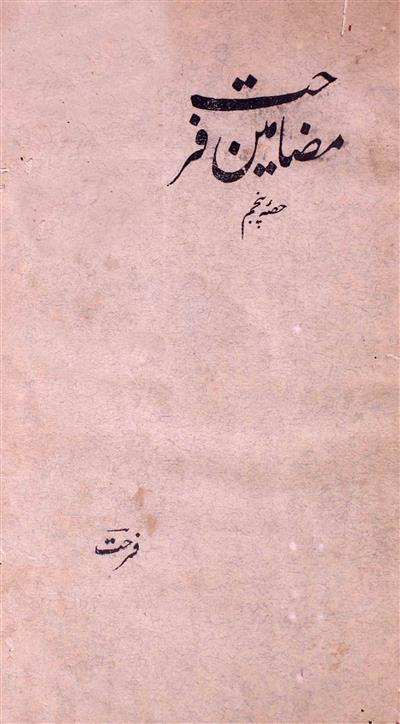 مضامین فرحت
حصۂ پنجم
فرحت